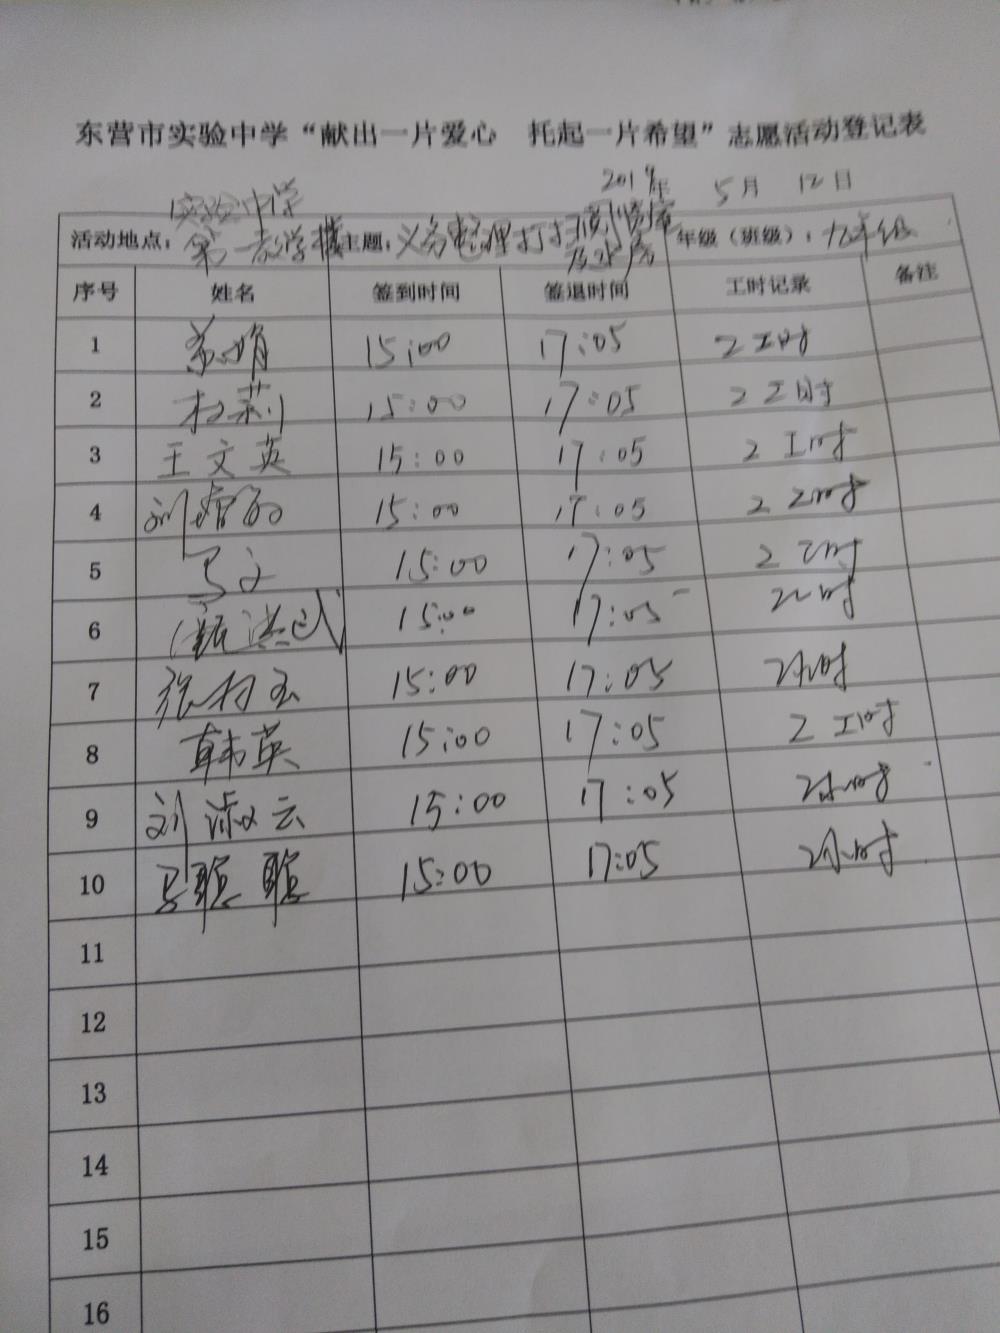 东营市实验中学“献出一片爱心 托起一片希望”志愿活动登记表
2019年 5月 12日
实验中学
活动地点: 第一教学楼 主题: 义务整理打扫 年级（班级）: 九年级
序号 姓名 签到时间 签退时间 工时记录 备注
1 15:00 17:05 2工时
2 杜莉 15:00 17:05 2工时
3 王文英 15:00 17:05 2工时
4 刘 15:00 17:05 2工时
5 马 15:00 17:05 2工时
6 15:00 17:05
7 张 玉 15:00 17:05 2小时
8 韩英 15:00 17:05 2工时
9 刘淑云 15:00 17:05 2小时
10 马聪聪 15:00 17:05 2小时
11
12
13
14
15
16